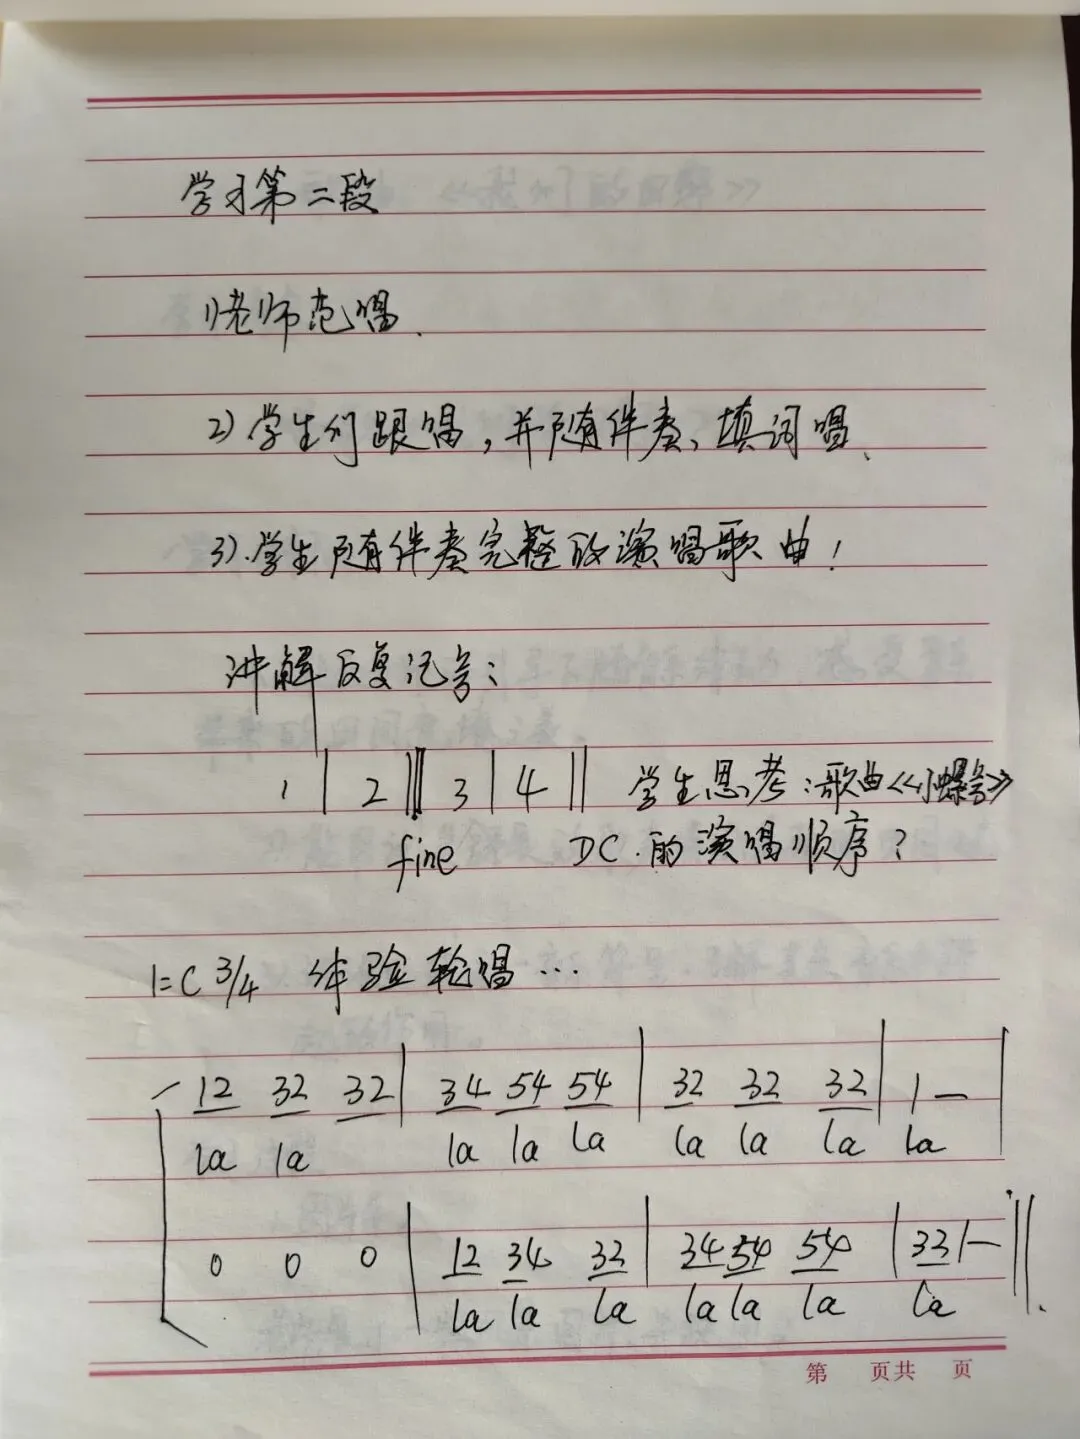 学习第二段
1)老师范唱.
2)学生们跟唱,并随伴奏、填词唱.
3).学生随伴奏完整的演唱歌曲!
讲解反复记号:
1 | 2 ‖ 3 | 4 ‖ 学生思考:歌曲《小螺号》
fine DC.的演唱顺序?
1=C 3/4 体验轮唱...
12 32 32 | 34 54 54 | 32 32 32 | 1 — |
la la la la la la la la la
0 0 0 | 12 34 32 | 34 54 54 | 33 1 — ‖
la la la la la la la
第 页共 页